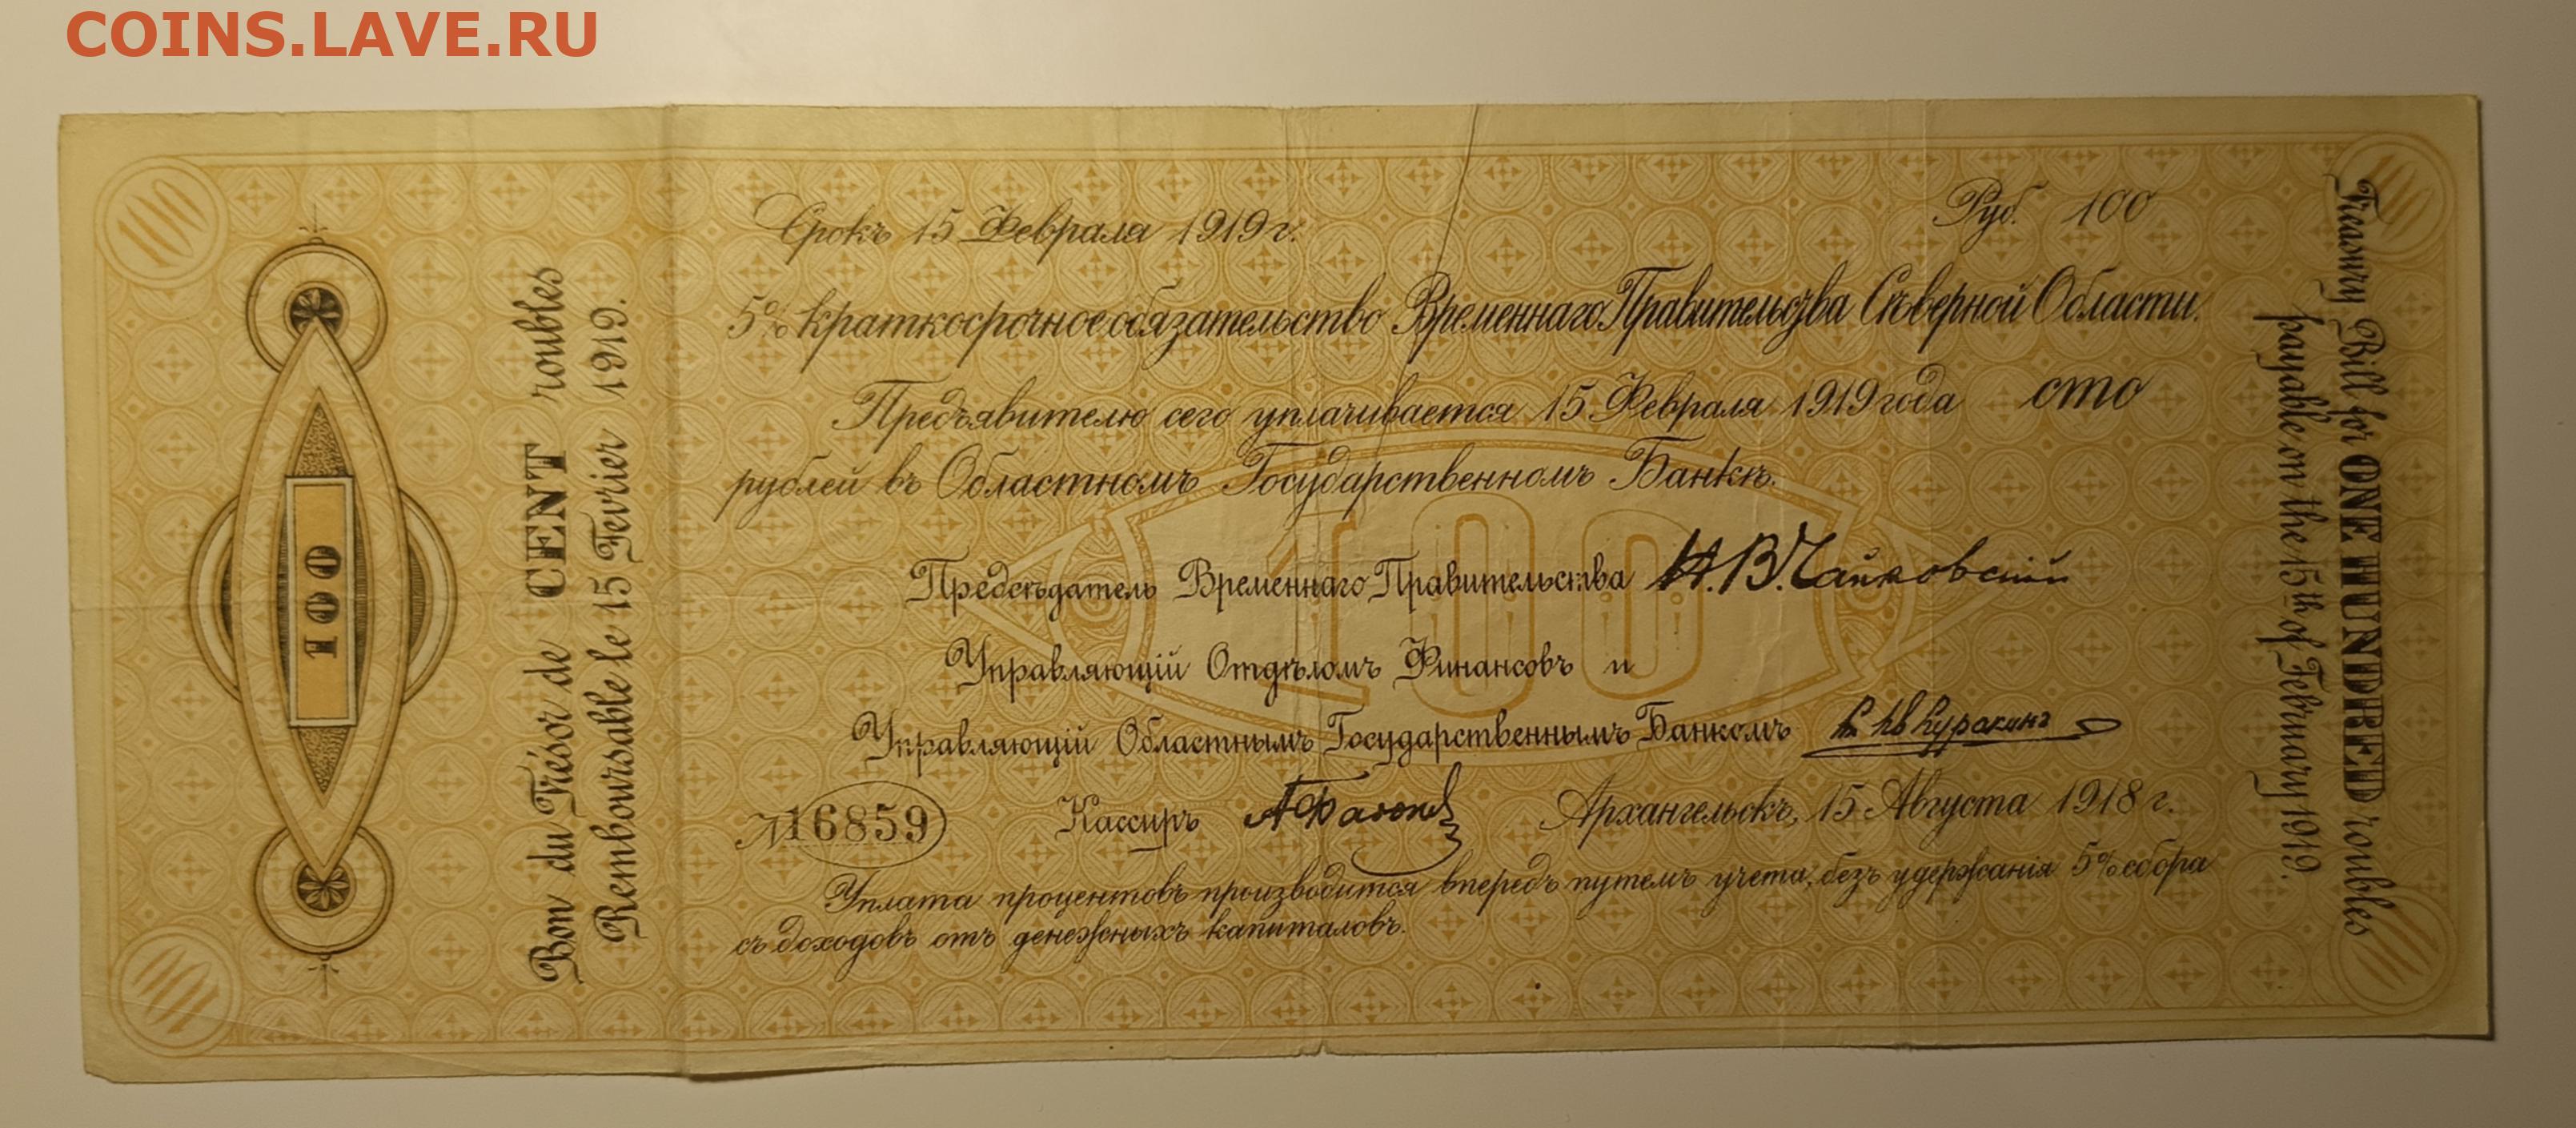 COINS.LAVE.RU
100
100
Срокъ 15 Февраля 1919 г.
Руб. 100
5% краткосрочное обязательство Временнаго Правительства Съверной Области.
Предъявителю сего уплачивается 15 Февраля 1919 года сто
рублей въ Областномъ Государственномъ Банкѣ.
100
Предсѣдатель Временнаго Правительства Н.В.Чайковскій
Управляющій Отдѣломъ Финансовъ и
Управляющій Областнымъ Государственнымъ Банкомъ Куракинъ
№ 16859
Кассиръ
Архангельскъ, 15 Августа 1918 г.
Уплата процентовъ производится впередъ путемъ учета, безъ удержанія 5% сбора
съ доходовъ отъ денежныхъ капиталовъ.
100
Bon du Trésor de CENT roubles
Remboursable le 15 Fevrier 1919.
Treasury Bill for ONE HUNDRED roubles
payable on the 15th of February 1919.
100
100